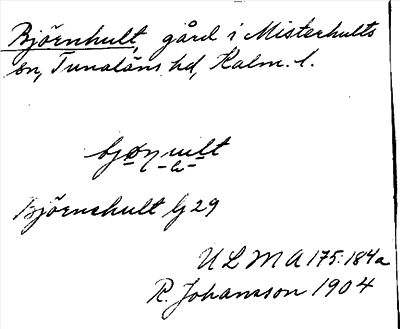 Björnhult, gård i Misterhults
sn, Tunaläns hd, Kalm. l.
Björnehult lj 29
ULMA 175:184a
R. Johansson 1904